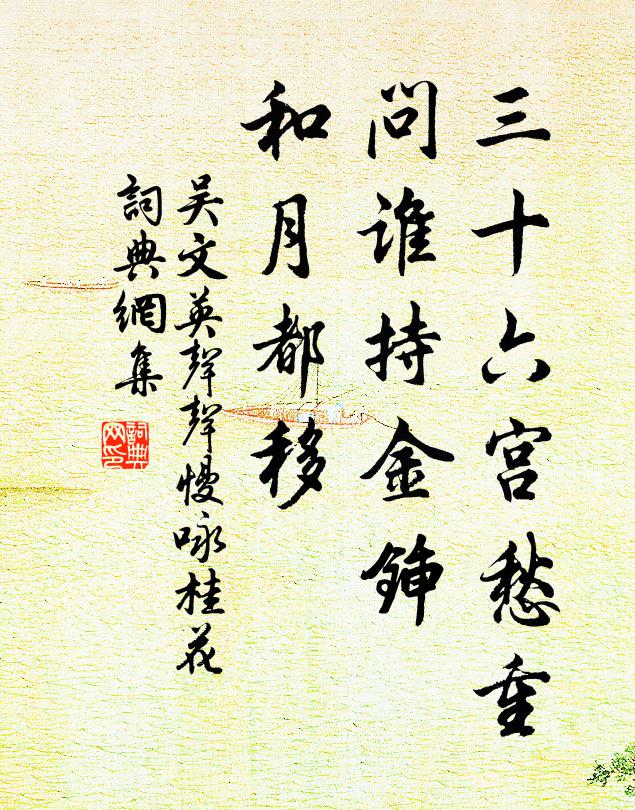 三十六宫愁重
問誰持金鍤
和月都移
吴文英聲聲慢咏桂花
詞典網集
詞典网印